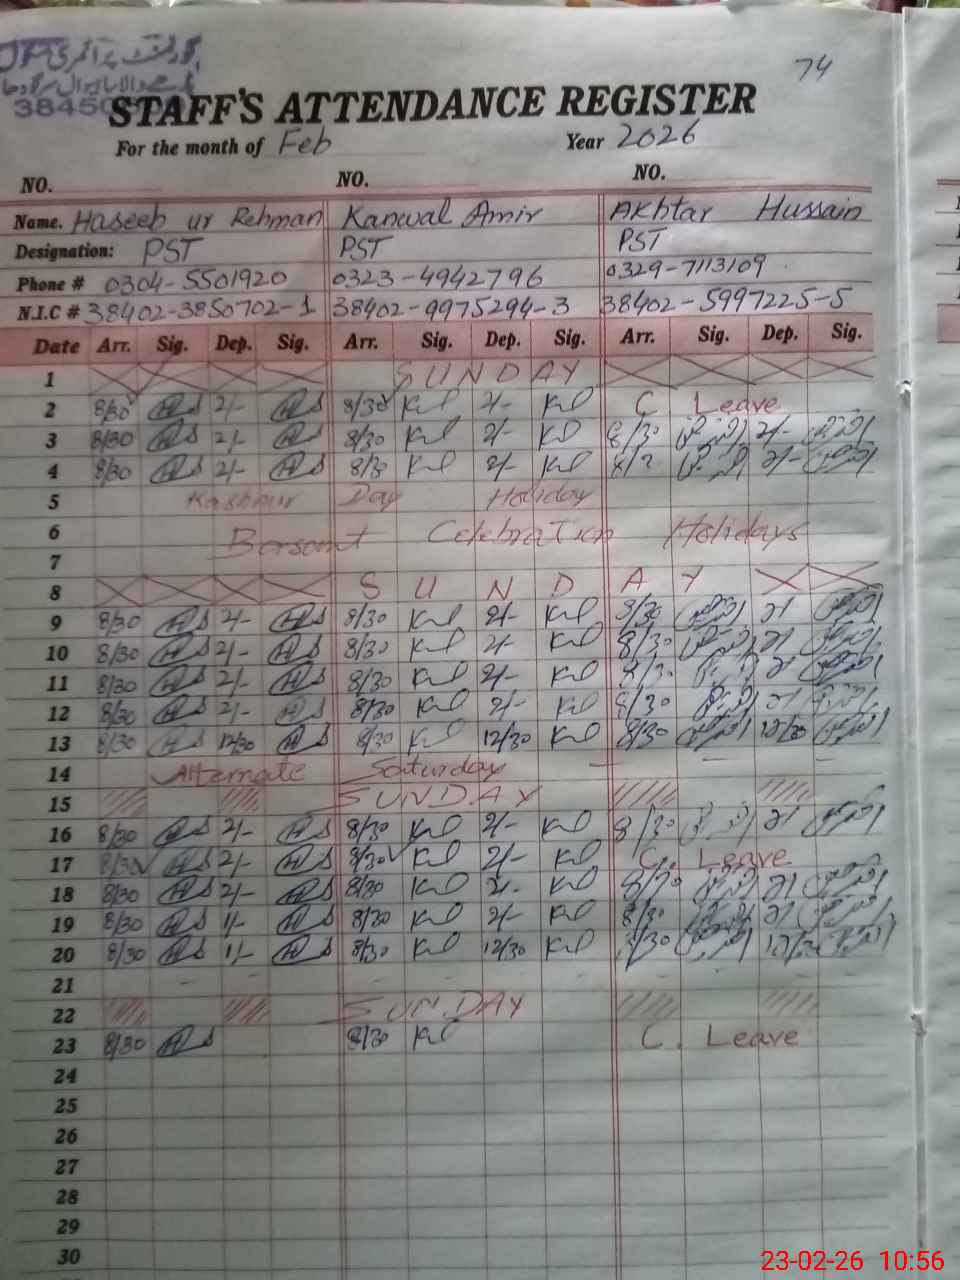 گورنمنٹ پرائمری
3845
74
STAFF'S ATTENDANCE REGISTER
For the month of Feb Year 2026
NO. NO. NO.
Name. Haseeb ur Rehman Kanwal Amir Akhtar Hussain
Designation: PST PST PST
Phone # 0304-5501920 0323-4942796 0329-7113109
N.I.C # 38402-3850702-1 38402-9975294-3 38402-5997225-5
Date Arr. Sig. Dep. Sig. Arr. Sig. Dep. Sig. Arr. Sig. Dep. Sig.
1 SUNDAY
2 8/30 2/- 8/30 2/- C Leave
3 8/30 2/- 8/30 2/- 8/30 2/-
4 8/30 2/- 8/30 2/- 2/-
5 Kashmir Day Holiday
6 Basant Celebration Holidays
7
8 SUNDAY
9 8/30 2/- 8/30 2/- 8/30 2/
10 8/30 2/- 8/30 2/- 8/30 2/
11 8/30 2/- 8/30 2/- 8/30 2/
12 8/30 2/- 8/30 2/- 8/30 2/
13 8/30 12/30 8/30 12/30 8/30 12/30
14 Alternate Saturday
15 SUNDAY
16 8/30 2/- 8/30 2/- 8/30 2/
17 8/30 2/- 8/30 2/- C. Leave
18 8/30 2/- 8/30 2/- 8/30 2/
19 8/30 1/- 8/30 2/- 8/30 2/
20 8/30 1/- 8/30 12/30 8/30
21
22 SUNDAY
23 8/30 8/30 C. Leave
24
25
26
27
28
29
30
23-02-26 10:56